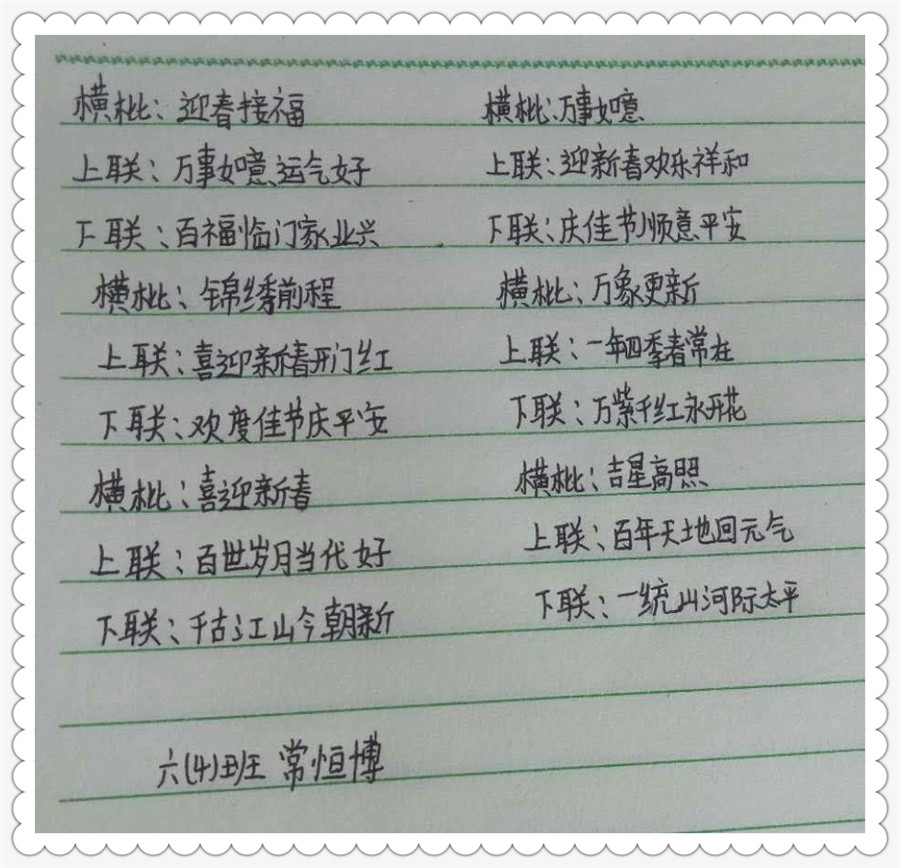 横枇：迎春接福
上联：万事如意运气好
下联：百福临门家业兴
横枇：锦绣前程
上联：喜迎新春开门红
下联：欢度佳节庆平安
横枇：喜迎新春
上联：百世岁月当代好
下联：千古江山今朝新
横枇：万事如意
上联：迎新春欢乐祥和
下联：庆佳节顺意平安
横枇：万象更新
上联：一年四季春常在
下联：万紫千红永开花
横枇：吉星高照
上联：百年天地回元气
下联：一统山河际太平
六(4)班 常恒博